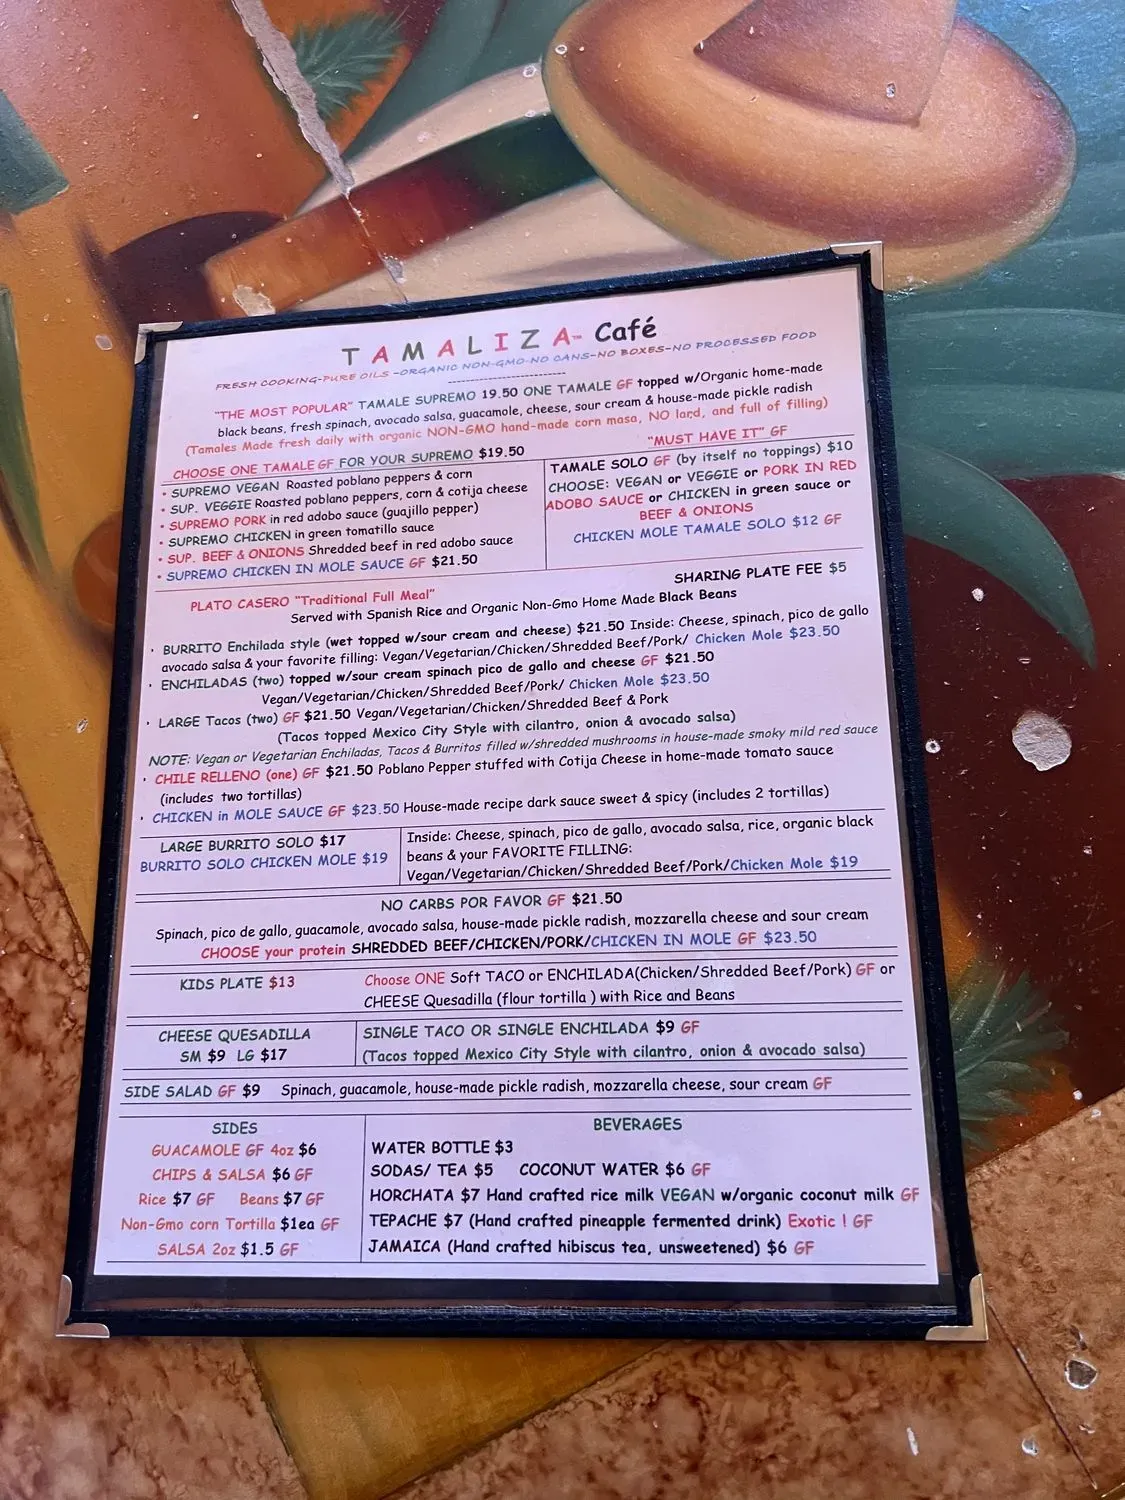 TAMALIZA™ Café
FRESH COOKING-PURE OILS -ORGANIC NON-GMO-NO CANS-NO BOXES-NO PROCESSED FOOD
"THE MOST POPULAR" TAMALE SUPREMO 19.50 ONE TAMALE GF topped w/Organic home-made
black beans, fresh spinach, avocado salsa, guacamole, cheese, sour cream & house-made pickle radish
(Tamales Made fresh daily with organic NON-GMO hand-made corn masa, NO lard, and full of filling)
CHOOSE ONE TAMALE GF FOR YOUR SUPREMO $19.50
• SUPREMO VEGAN Roasted poblano peppers & corn
• SUP. VEGGIE Roasted poblano peppers, corn & cotija cheese
• SUPREMO PORK in red adobo sauce (guajillo pepper)
• SUPREMO CHICKEN in green tomatillo sauce
• SUP. BEEF & ONIONS Shredded beef in red adobo sauce
• SUPREMO CHICKEN IN MOLE SAUCE GF $21.50
"MUST HAVE IT" GF
TAMALE SOLO GF (by itself no toppings) $10
CHOOSE: VEGAN or VEGGIE or PORK IN RED
ADOBO SAUCE or CHICKEN in green sauce or
BEEF & ONIONS
CHICKEN MOLE TAMALE SOLO $12 GF
SHARING PLATE FEE $5
PLATO CASERO "Traditional Full Meal"
Served with Spanish Rice and Organic Non-Gmo Home Made Black Beans
• BURRITO Enchilada style (wet topped w/sour cream and cheese) $21.50 Inside: Cheese, spinach, pico de gallo
avocado salsa & your favorite filling: Vegan/Vegetarian/Chicken/Shredded Beef/Pork/ Chicken Mole $23.50
• ENCHILADAS (two) topped w/sour cream spinach pico de gallo and cheese GF $21.50
Vegan/Vegetarian/Chicken/Shredded Beef/Pork/ Chicken Mole $23.50
• LARGE Tacos (two) GF $21.50 Vegan/Vegetarian/Chicken/Shredded Beef & Pork
(Tacos topped Mexico City Style with cilantro, onion & avocado salsa)
NOTE: Vegan or Vegetarian Enchiladas, Tacos & Burritos filled w/shredded mushrooms in house-made smoky mild red sauce
• CHILE RELLENO (one) GF $21.50 Poblano Pepper stuffed with Cotija Cheese in home-made tomato sauce
(includes two tortillas)
• CHICKEN in MOLE SAUCE GF $23.50 House-made recipe dark sauce sweet & spicy (includes 2 tortillas)
LARGE BURRITO SOLO $17
BURRITO SOLO CHICKEN MOLE $19
Inside: Cheese, spinach, pico de gallo, avocado salsa, rice, organic black
beans & your FAVORITE FILLING:
Vegan/Vegetarian/Chicken/Shredded Beef/Pork/Chicken Mole $19
NO CARBS POR FAVOR GF $21.50
Spinach, pico de gallo, guacamole, avocado salsa, house-made pickle radish, mozzarella cheese and sour cream
CHOOSE your protein SHREDDED BEEF/CHICKEN/PORK/CHICKEN IN MOLE GF $23.50
KIDS PLATE $13
Choose ONE Soft TACO or ENCHILADA(Chicken/Shredded Beef/Pork) GF or
CHEESE Quesadilla (flour tortilla ) with Rice and Beans
CHEESE QUESADILLA
SM $9 LG $17
SINGLE TACO OR SINGLE ENCHILADA $9 GF
(Tacos topped Mexico City Style with cilantro, onion & avocado salsa)
SIDE SALAD GF $9 Spinach, guacamole, house-made pickle radish, mozzarella cheese, sour cream GF
SIDES
GUACAMOLE GF 4oz $6
CHIPS & SALSA $6 GF
Rice $7 GF Beans $7 GF
Non-Gmo corn Tortilla $1ea GF
SALSA 2oz $1.5 GF
BEVERAGES
WATER BOTTLE $3
SODAS/ TEA $5 COCONUT WATER $6 GF
HORCHATA $7 Hand crafted rice milk VEGAN w/organic coconut milk GF
TEPACHE $7 (Hand crafted pineapple fermented drink) Exotic ! GF
JAMAICA (Hand crafted hibiscus tea, unsweetened) $6 GF